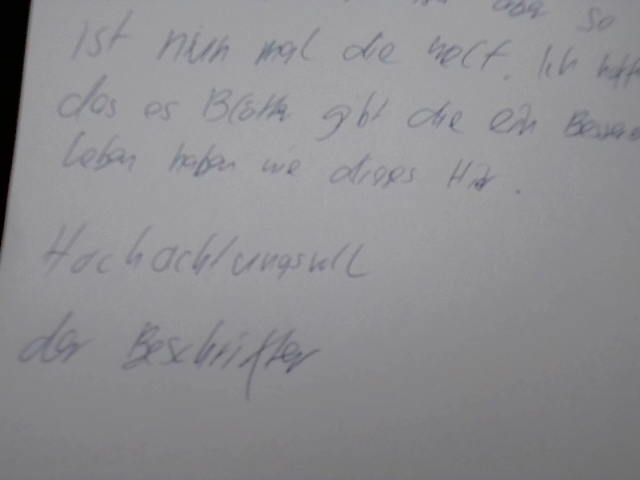 aber so
ist nun mal die welt. Ich
das es Blätter gibt die ein
leben haben wie dieses Hir.
Hochachtungsvoll
der Beschrifter